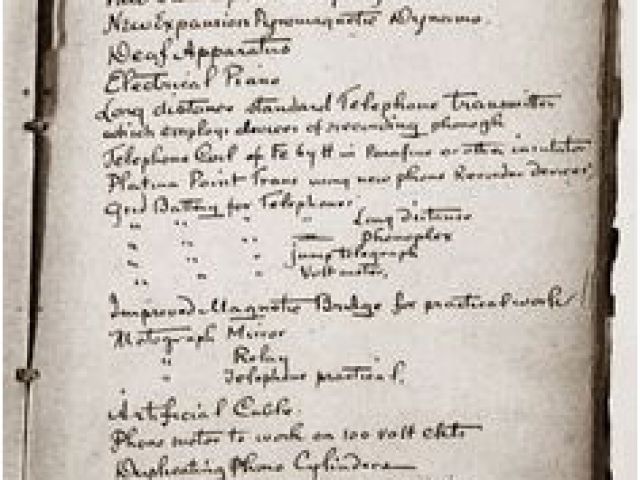 New Expansion Pyromagnetic Dynamo.
Deaf Apparatus
Electrical Piano
Long distance standard Telephone transmitter
which employs devices of recording phonogh
Telephone Coil of Fe by H in Parafine or other insulator
Platina Point Trans using new phono Recorder devices,
Grid Battery for Telephones.
" " " " Long distance
" " " — Phonoplex
" " " " jump telegraph
" " " Voltmeter.
Improved Magnetic Bridge for practical work
Motograph Mirror
" Relay
" Telephone practical.
Artificial Cable.
Phono motor to work on 100 volt ckts
Duplicating Phono Cylinders